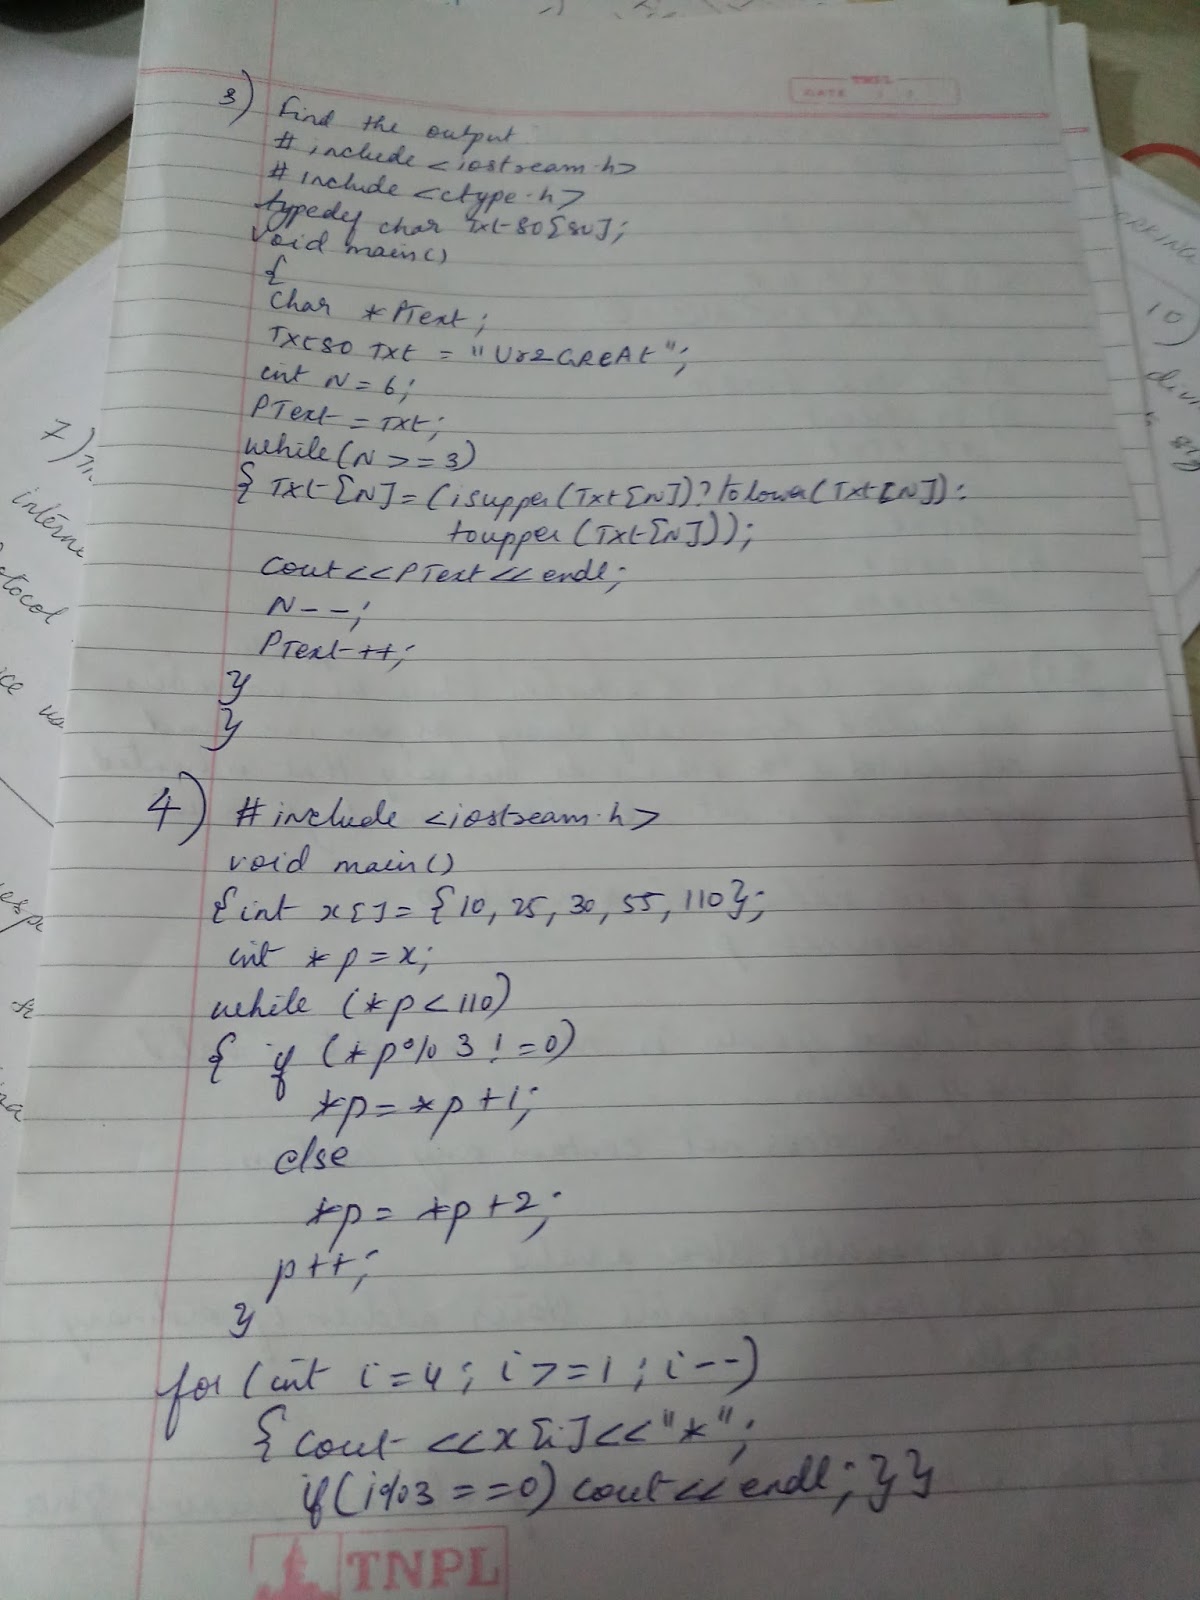 TNPL
DATE
3) Find the output:
# include <iostream.h>
# include <ctype.h>
typedef char Txt80[80];
void main()
{
Char *PText;
Txt80 Txt = "Ur2GReAt";
int N = 6;
PText = Txt;
while (N >= 3)
{ Txt[N] = (isupper(Txt[N])? tolower(Txt[N]):
toupper(Txt[N]));
cout<<PText<<endl;
N--;
PText++;
}
}
4) # include <iostream.h>
void main()
{ int x[] = {10, 25, 30, 55, 110};
int *p = x;
while (*p < 110)
{ if (*p%3 != 0)
*p = *p+1;
else
*p = *p+2;
p++;
}
for (int i = 4; i >= 1; i--)
{ cout <<x[i]<<"*";
if (i%3 == 0) cout<<endl; } }
TNPL
7)
10)